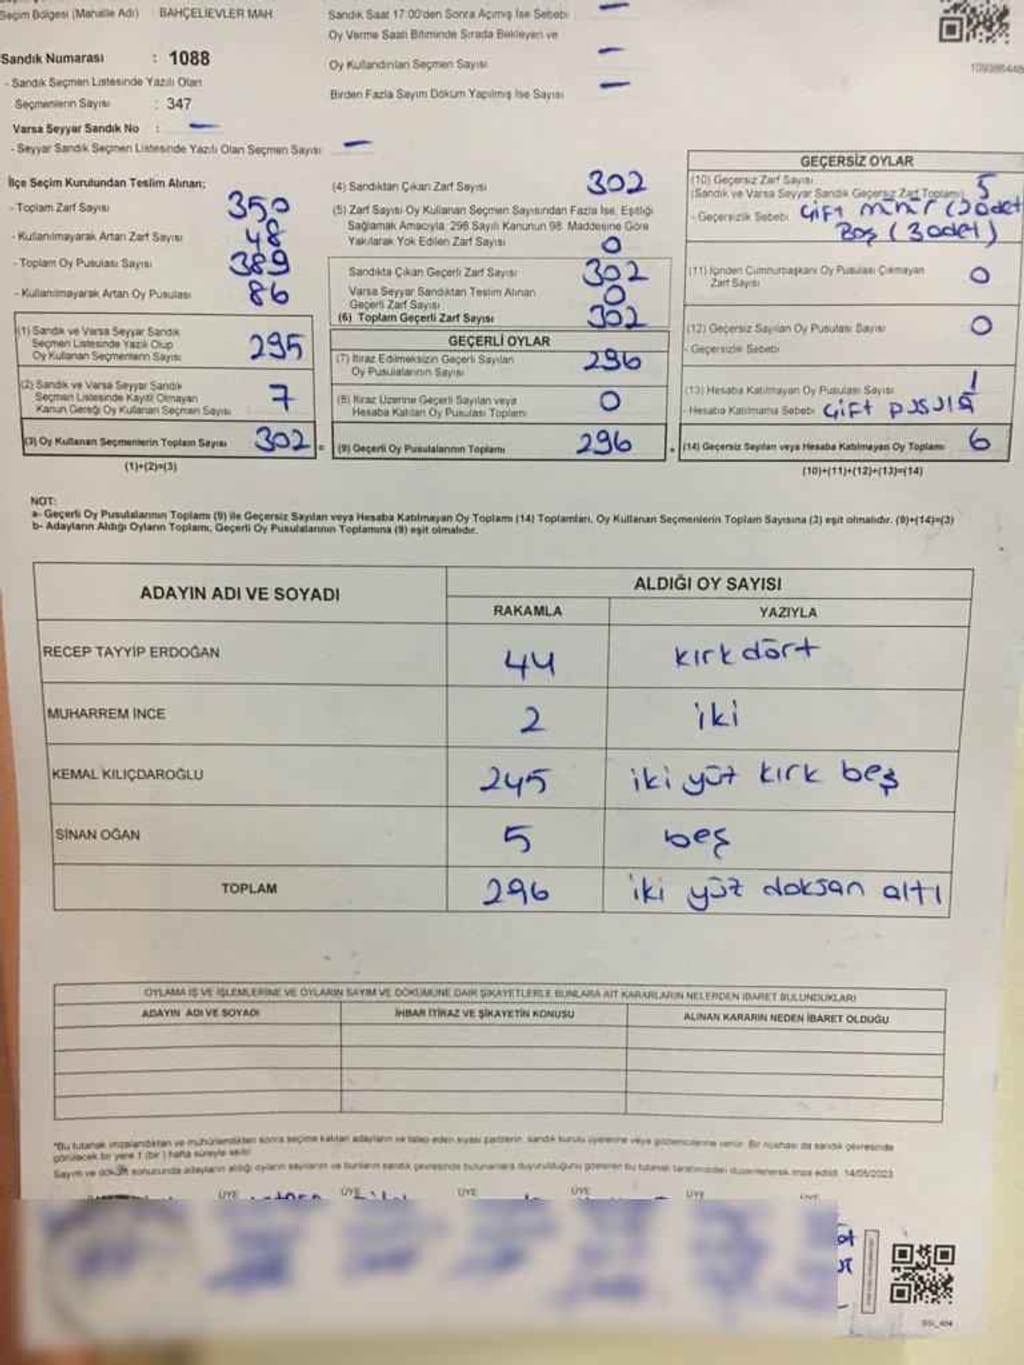 Seçim Bölgesi (Mahalle Adı) : BAHÇELİEVLER MAH.
Sandık Numarası : 1088
- Sandık Seçmen Listesinde Yazılı Olan
Seçmenlerin Sayısı : 347
Varsa Seyyar Sandık No : -
- Seyyar Sandık Seçmen Listesinde Yazılı Olan Seçmen Sayısı: -
Sandık Saat 17:00'den Sonra Açımış İse Sebebi -
Oy Verme Saati Bitiminde Sırada Bekleyen ve
Oy Kullandırılan Seçmen Sayısı -
Birden Fazla Sayım Döküm Yapılmış İse Sayısı -
İlçe Seçim Kurulundan Teslim Alınan;
- Toplam Zarf Sayısı 350
- Kullanılmayarak Artan Zarf Sayısı 48
- Toplam Oy Pusulası Sayısı 389
- Kullanılmayarak Artan Oy Pusulası 86
(1) Sandık ve Varsa Seyyar Sandık
Seçmen Listesinde Yazılı Olup
Oy Kullanan Seçmenlerin Sayısı 295
(2) Sandık ve Varsa Seyyar Sandık
Seçmen Listesinde Kayıtlı Olmayan
Kanun Gereği Oy Kullanan Seçmen Sayısı 7
(3) Oy Kullanan Seçmenlerin Toplam Sayısı 302 =
(1)+(2)=(3)
(4) Sandıktan Çıkan Zarf Sayısı 302
(5) Zarf Sayısı Oy Kullanan Seçmen Sayısından Fazla İse, Eşitliği
Sağlamak Amacıyla; 298 Sayılı Kanunun 98. Maddesine Göre
Yakılarak Yok Edilen Zarf Sayısı 0
Sandıkta Çıkan Geçerli Zarf Sayısı 302
Varsa Seyyar Sandıktan Teslim Alınan
Geçerli Zarf Sayısı 0
(6) Toplam Geçerli Zarf Sayısı 302
GEÇERLİ OYLAR
(7) İtiraz Edilmeksizin Geçerli Sayılan
Oy Pusulalarının Sayısı 296
(8) İtiraz Üzerine Geçerli Sayılan veya
Hesaba Katılan Oy Pusulası Toplamı 0
(9) Geçerli Oy Pusulalarının Toplamı 296 +
GEÇERSİZ OYLAR
(10) Geçersiz Zarf Sayısı 5
(Sandık ve Varsa Seyyar Sandık Geçersiz Zarf Toplamı)
- Geçersizlik Sebebi Çift
Boş (3 adet)
(11) İçinden Cumhurbaşkanı Oy Pusulası Çıkmayan
Zarf Sayısı 0
(12) Geçersiz Sayılan Oy Pusulası Sayısı 0
- Geçersizlik Sebebi
(13) Hesaba Katılmayan Oy Pusulası Sayısı 1
- Hesaba Katılmama Sebebi Çift pusula
(14) Geçersiz Sayılan veya Hesaba Katılmayan Oy Toplamı 6
(10)+(11)+(12)+(13)=(14)
NOT:
a- Geçerli Oy Pusulalarının Toplamı (9) ile Geçersiz Sayılan veya Hesaba Katılmayan Oy Toplamı (14) Toplamları, Oy Kullanan Seçmenlerin Toplam Sayısına (3) eşit olmalıdır. (9)+(14)=(3)
b- Adayların Aldığı Oyların Toplamı, Geçerli Oy Pusulalarının Toplamına (9) eşit olmalıdır.
ADAYIN ADI VE SOYADI ALDIĞI OY SAYISI
RAKAMLA YAZIYLA
RECEP TAYYİP ERDOĞAN 44 kırk dört
MUHARREM İNCE 2 iki
KEMAL KILIÇDAROĞLU 245 iki yüz kırk beş
SİNAN OĞAN 5 beş
TOPLAM 296 iki yüz doksan altı
OYLAMA İŞ VE İŞLEMLERİNE VE OYLARIN SAYIM VE DÖKÜMÜNE DAİR ŞİKAYETLERLE BUNLARA AİT KARARLARIN NELERDEN İBARET BULUNDUKLARI
ADAYIN ADI VE SOYADI İHBAR İTİRAZ VE ŞİKAYETİN KONUSU ALINAN KARARIN NEDEN İBARET OLDUĞU
*Bu tutanak imzalandıktan ve mühürlendikten sonra seçime katılan adayların ve talep eden siyasi partilerin, sandık kurulu üyelerine veya gözlemcilerine verilir. Bir nüshası da sandık çevresinde
görülecek bir yere 1 (bir) hafta süreyle asılır.
Sayım ve döküm sonucunda adayların aldığı oyların sayılarını ve bunların sandık çevresinde bulunanlara duyurulduğunu gösteren bu tutanak tarafımızdan düzenlenerek imza edildi. 14/05/2023
ÜYE ÜYE ÜYE ÜYE ÜYE ÜYE